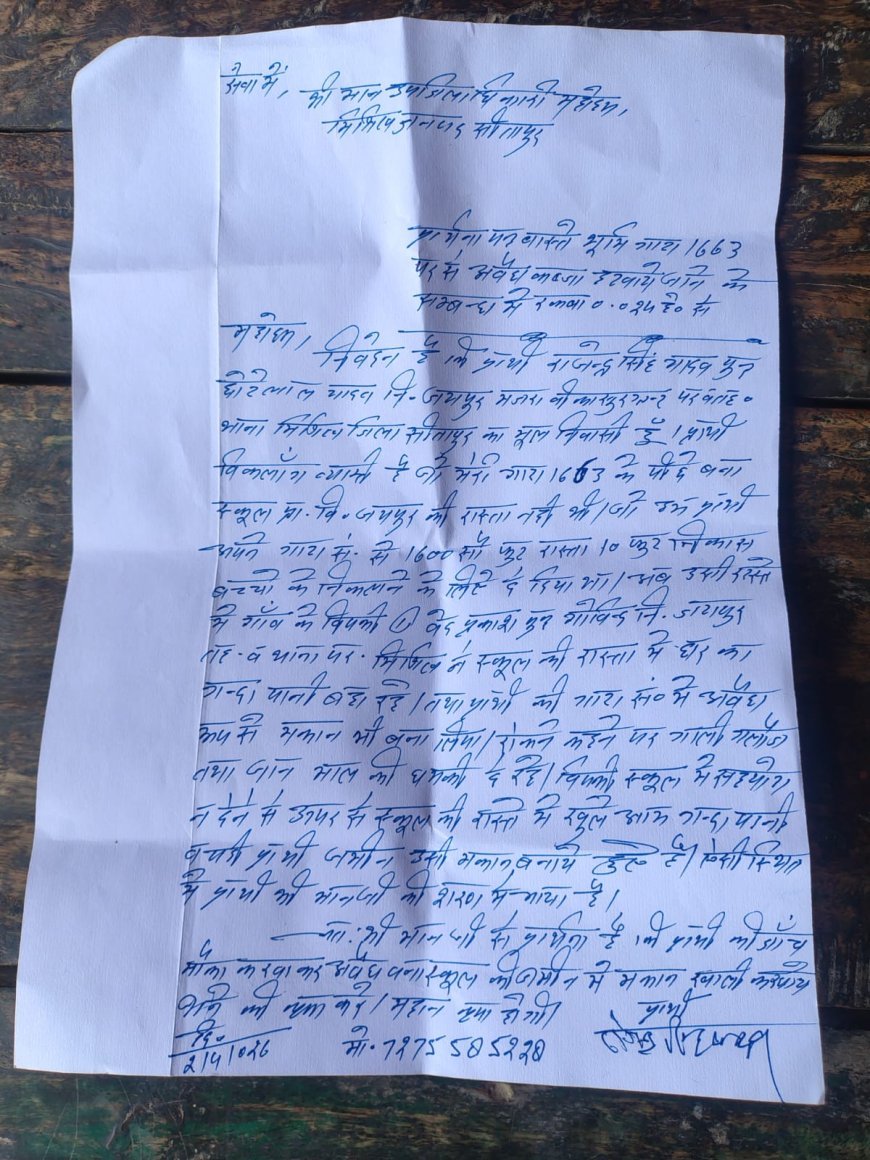 सेवा में,
श्री मान उपजिलाधिकारी महोदय,
मिश्रिख जनपद सीतापुर
प्रार्थना पत्र वास्ते भूमि गाटा 1663
पर से अवैध कब्जा हटवाये जाने के
सम्बन्ध में रकबा 0.024 हे० से
महोदय,
निवेदन है कि प्रार्थी राजेन्द्र सिंह यादव पुत्र
छोटेलाल यादव नि. जयपुर मजरा
थाना मिश्रिख जिला सीतापुर का मूल निवासी हूँ। प्रार्थी
विकलाँग व्यक्ति है जो मेरी गाटा 1663 के पीछे बना
स्कूल प्रा. वि. जयपुर को रास्ता नही थी। जो प्रार्थी
अपने गाटा सं. से 1600 सौ फुट रास्ता 10 फुट निकास
बच्चो के निकलने के लिए दे दिया था। अब इसी रास्ते
मे गाँव के विपक्षी (1) वेद प्रकाश पुत्र गोविन्द नि. जयपुर
तह. व थाना मिश्रिख ने स्कूल की रास्ता मे घर का
गन्दा पानी बहा रहे। तथा प्रार्थी की गाटा सं० मे अवैध
रूप से मकान भी बना लिया। रोकने कहने पर गाली गलौज
तथा जान माल की धमकी दे रहे। विपक्षी स्कूल मे सहयोग
न देने से ऊपर से स्कूल की रास्ते मे खुले आम गन्दा पानी
व प्रार्थी जमीन उसी मकान बनाये हुए है। ऐसी स्थिति
मे प्रार्थी श्री मान जी की शरण में आया है।
अतः श्री मान जी से प्रार्थना है कि प्रार्थी की जाँच
मौका करवाकर अवैध बना स्कूल की जमीन मे मकान खाली करवाये
जाने की कृपा करे। महान कृपा होगी।
प्रार्थी
दि०
2/4/026
मो. 7275585228